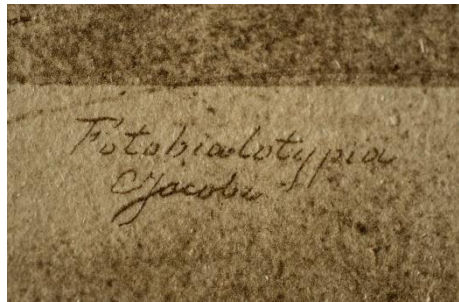 Fotohialotypia
Jacobi